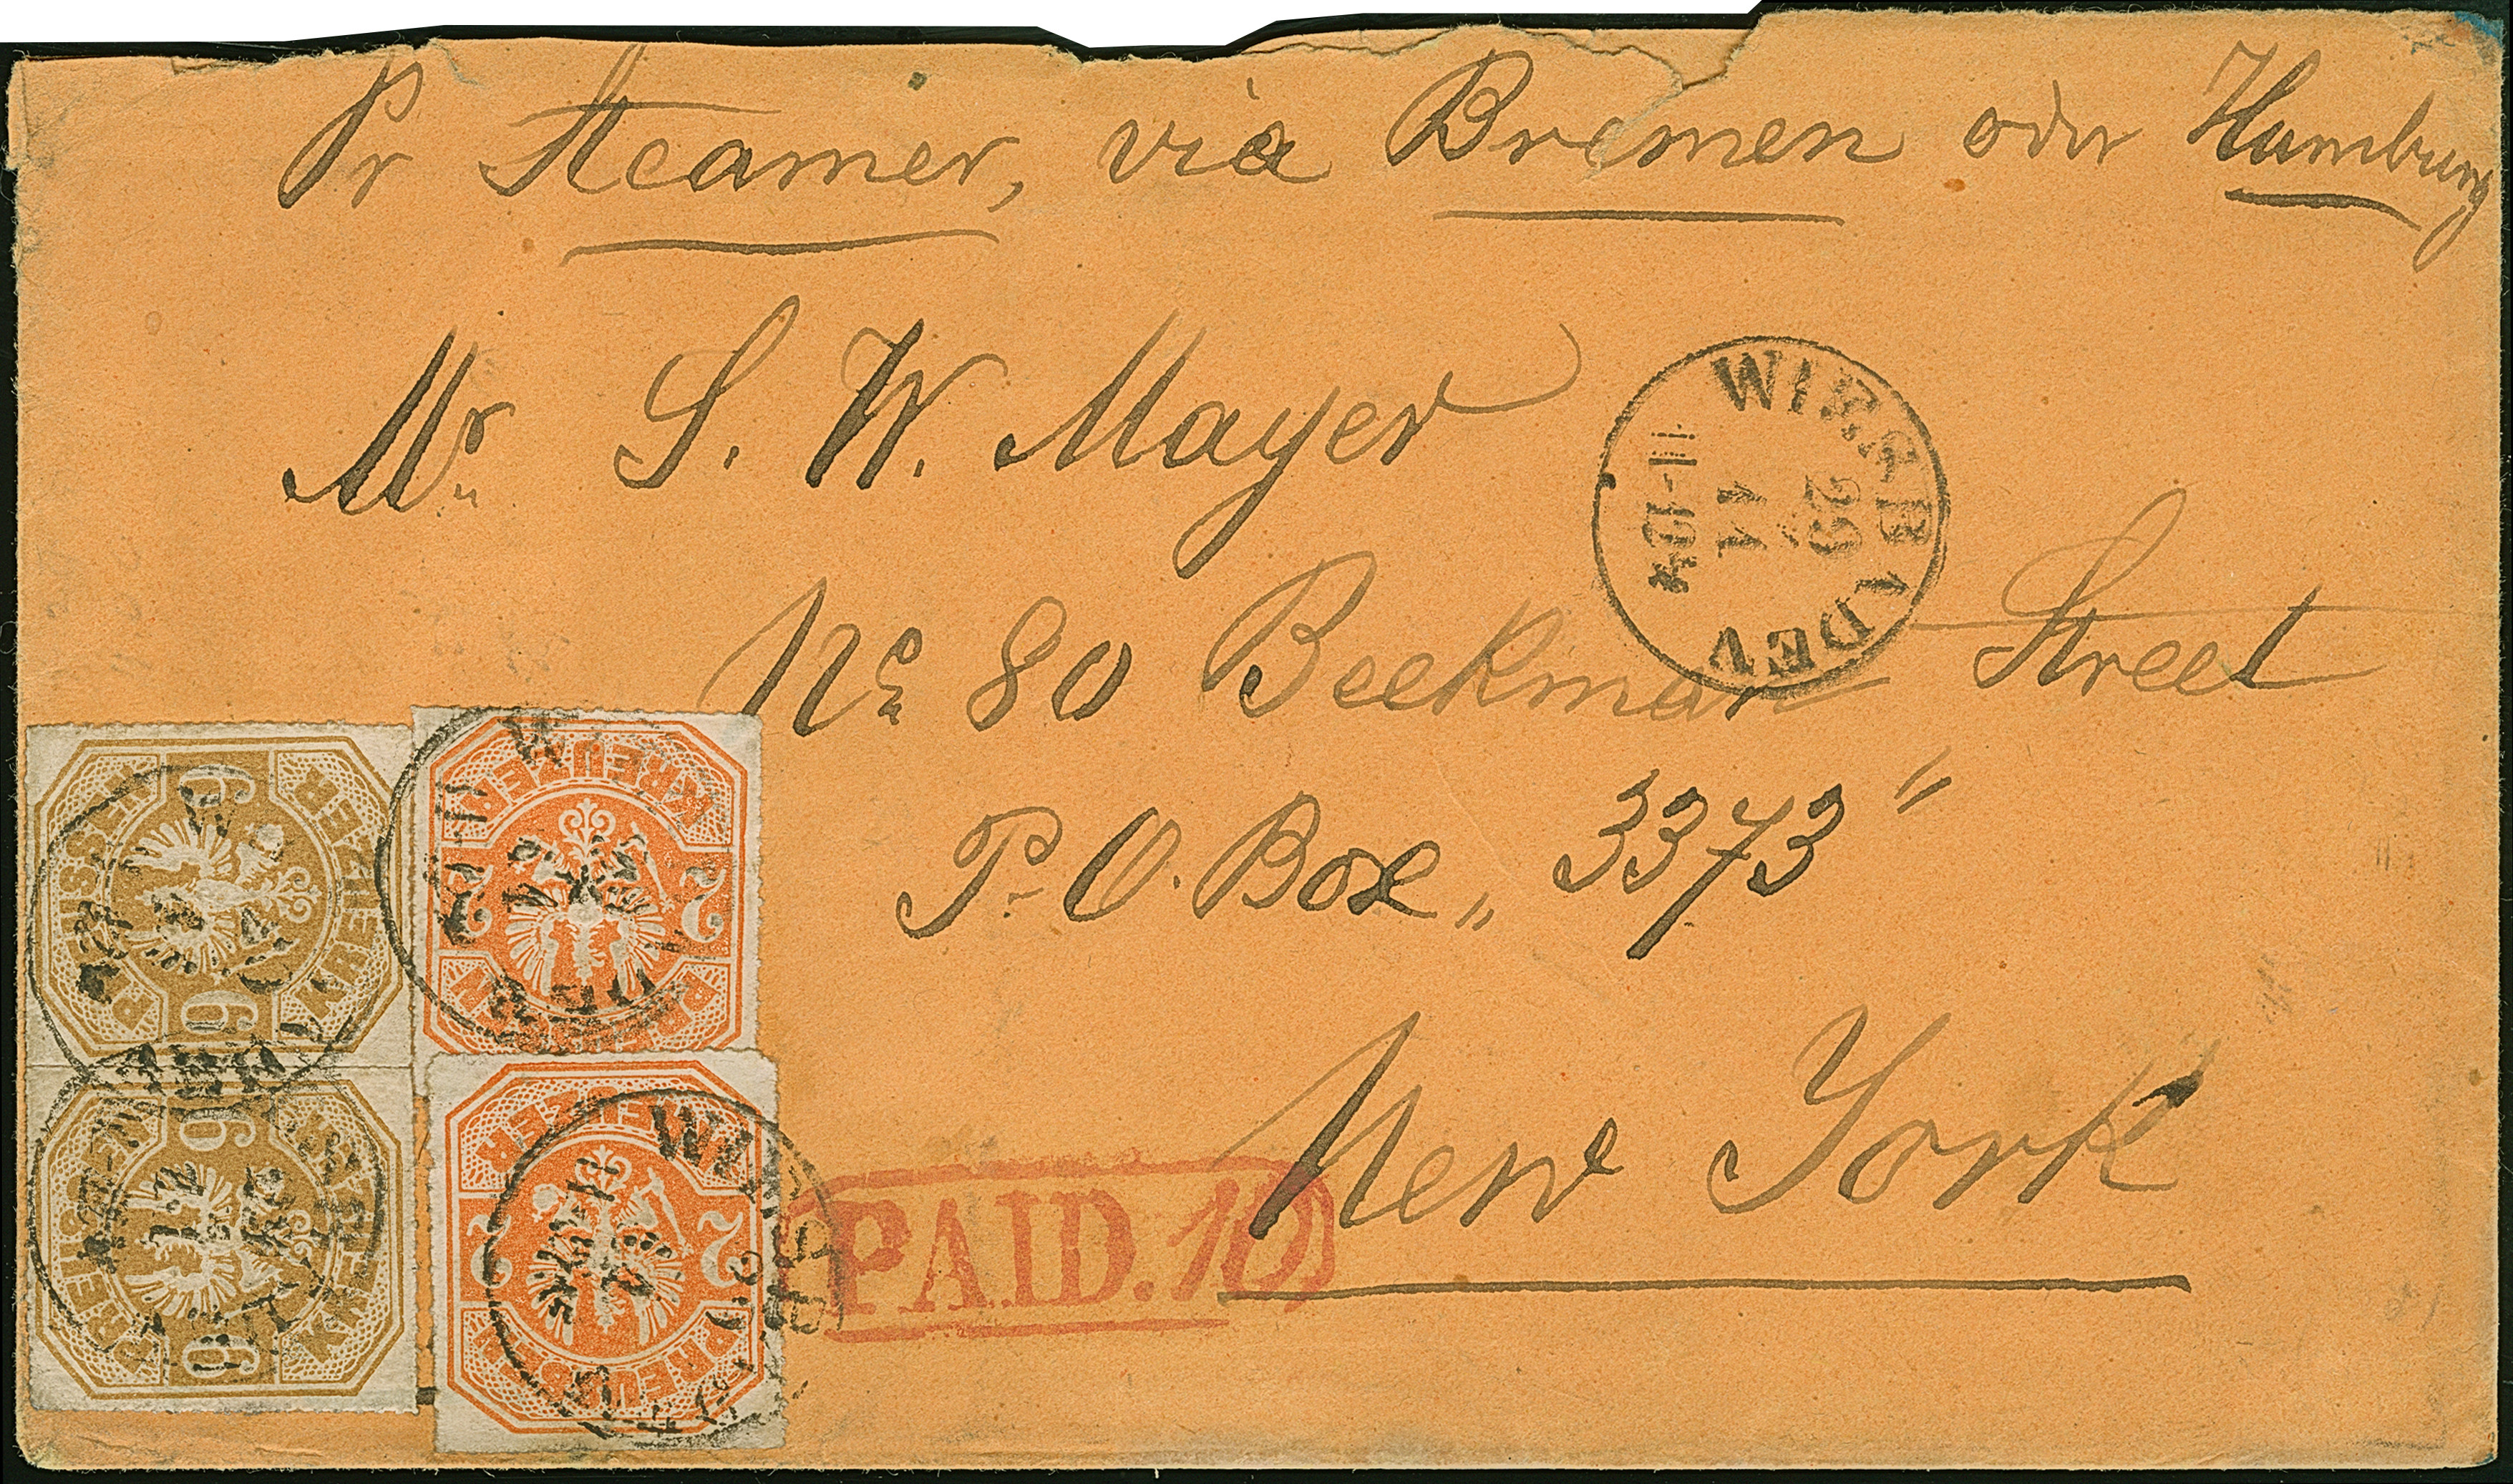 Pr Steamer, via Bremen oder Hamburg
Mr. S. W. Mayer
No. 80 Beekman Street
P. O. Box „ 3373 "
New York
WIESBADEN
29
11
PAID. 10
9 PREUSSEN KREUZER 9
9 PREUSSEN KREUZER 9
KREUZER 2 2 PREUSSEN
KREUZER 2 2 PREUSSEN
WIESBADEN
WIESBADEN